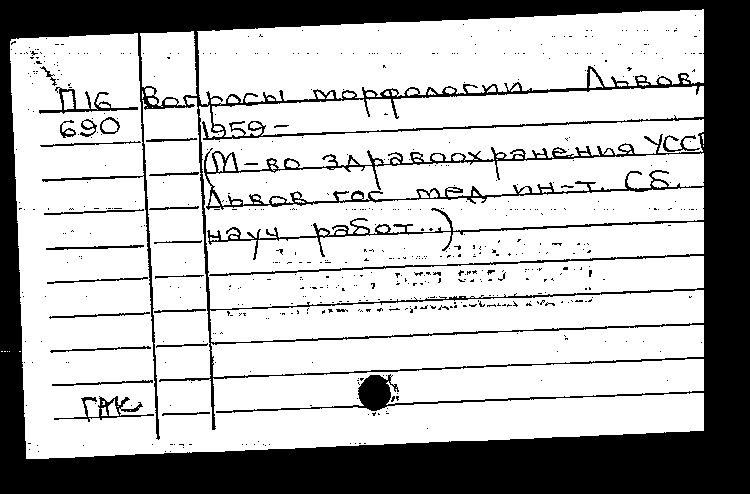 П16 Вопросы морфологии. Львов,
690 1959-
(М-во здравоохранения УССР
Львов гос мед ин-т. Сб.
науч. работ...).
ГАК